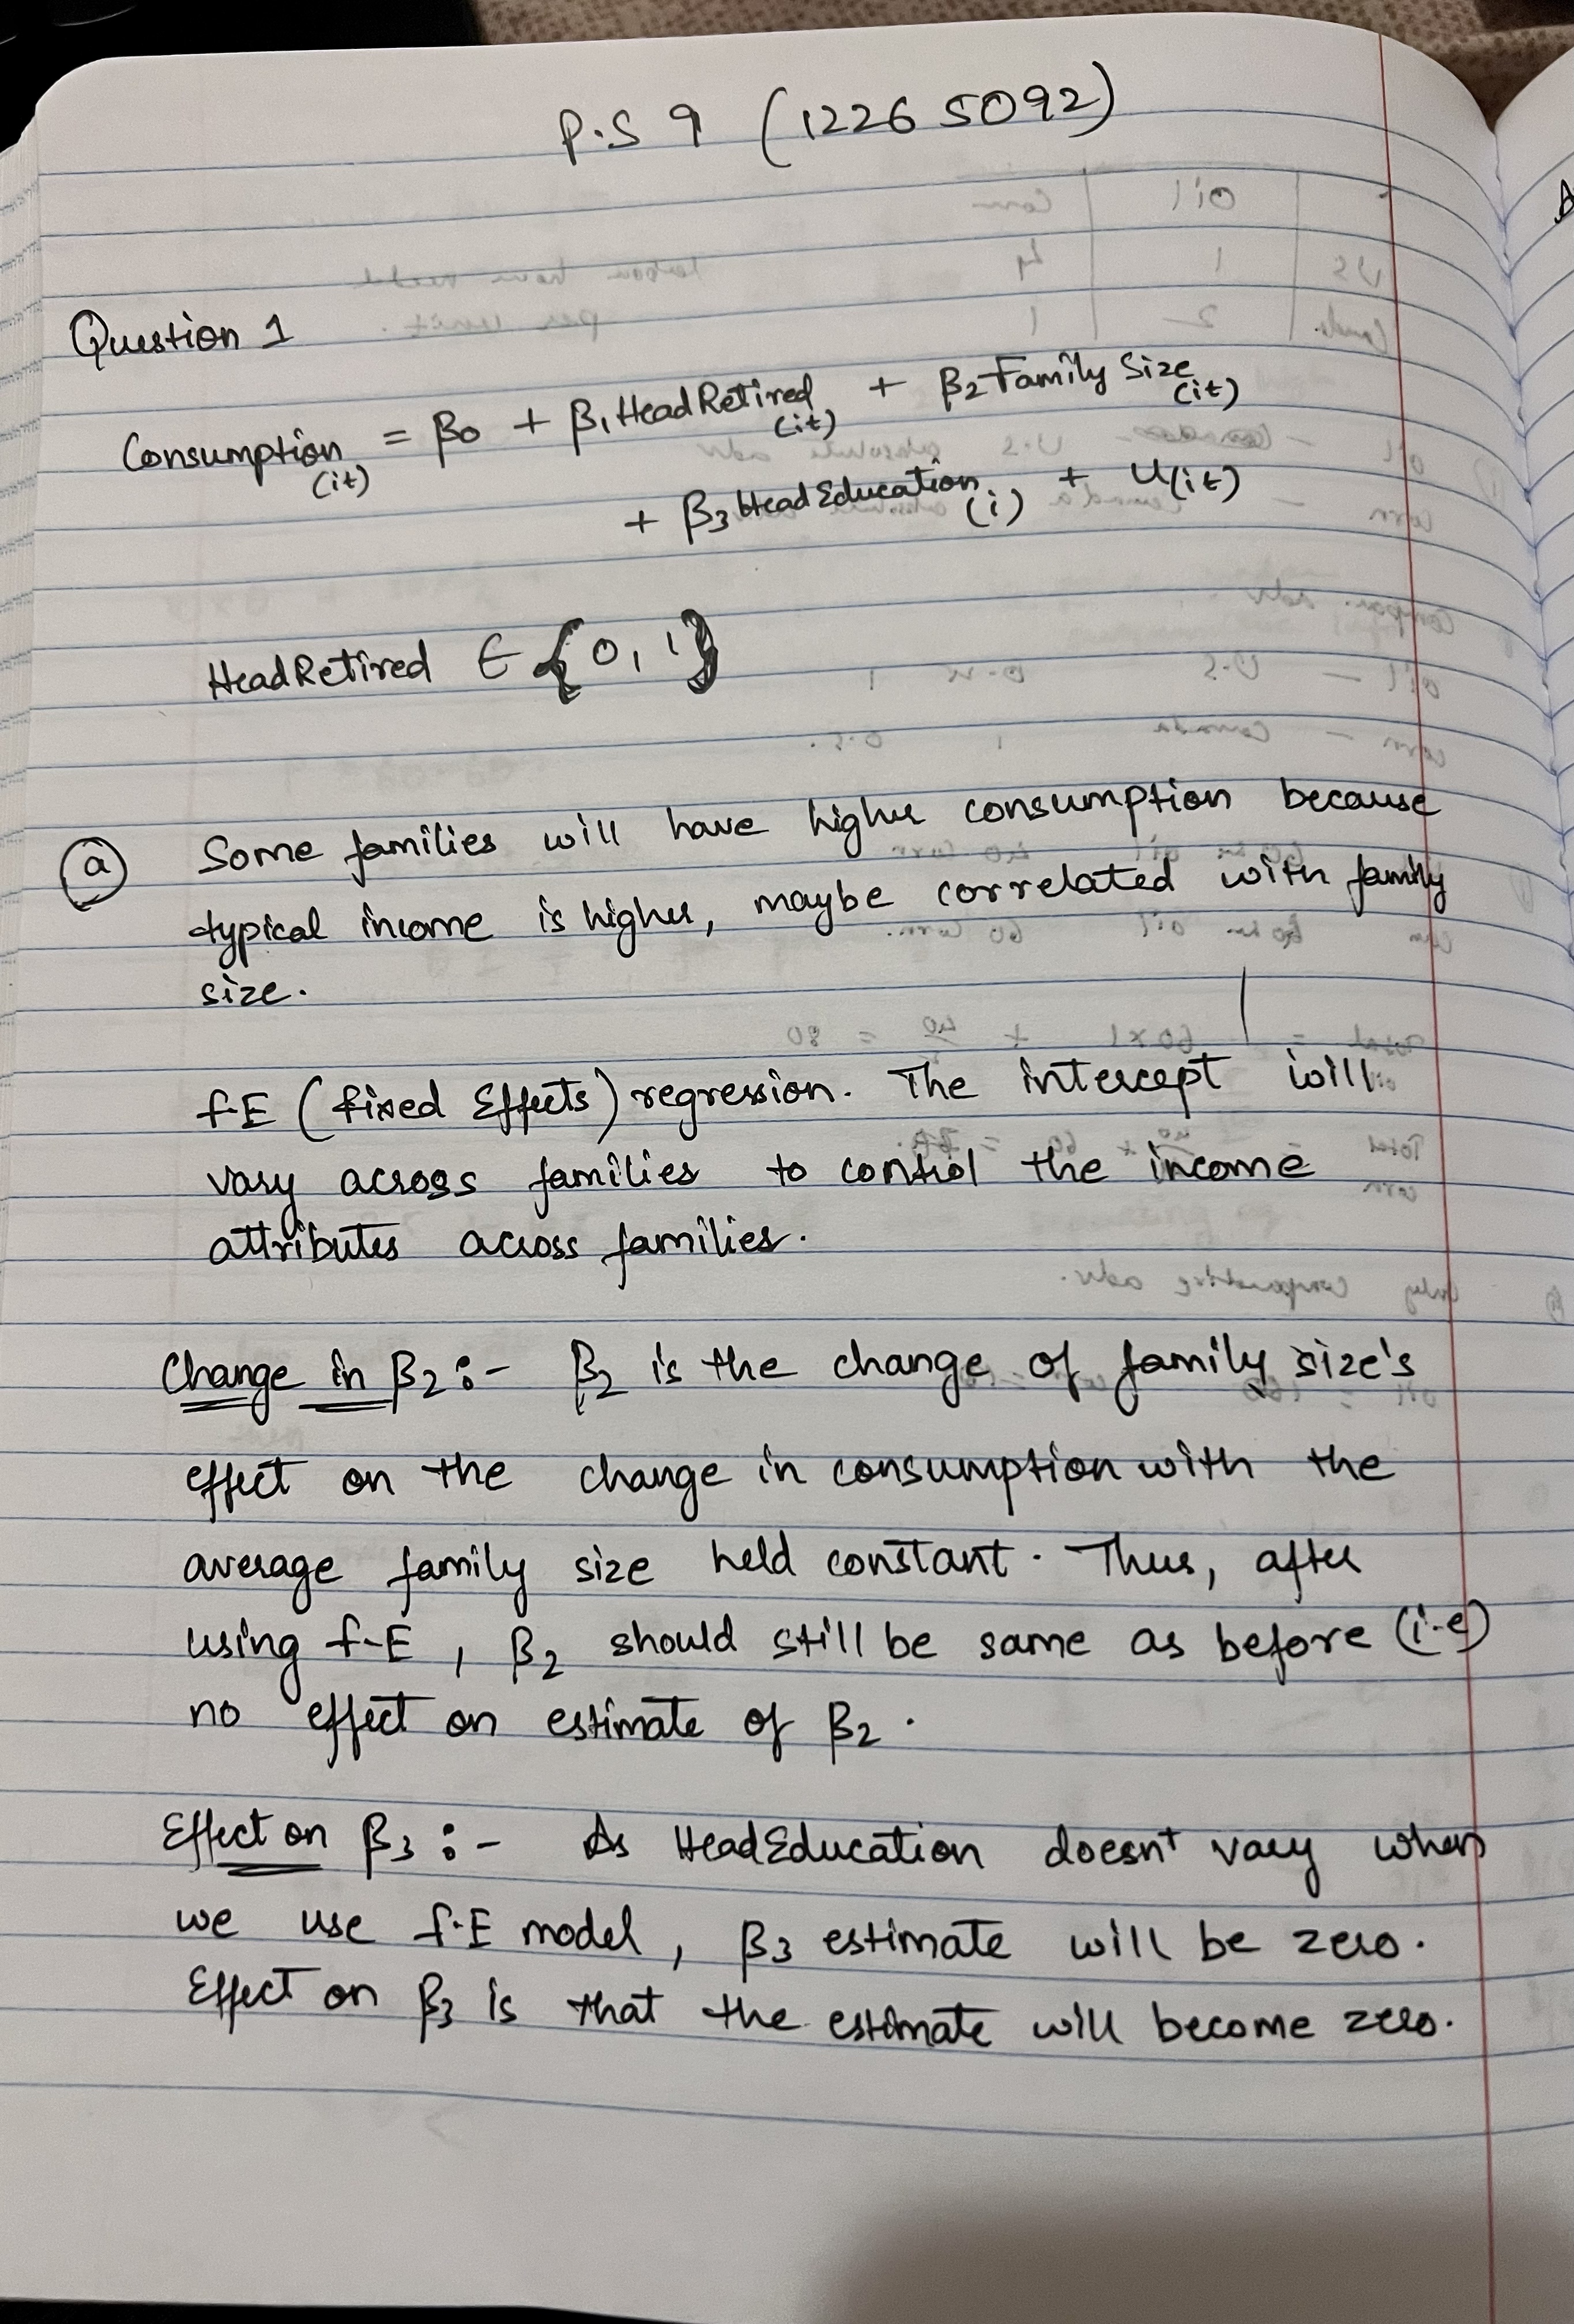 P.S 9 (1226 5092)
Question 1
Consumption(it) = β0 + β1 HeadRetired(it) + β2 Family Size(it)
+ β3 HeadEducation(i) + U(it)
HeadRetired ∈ {0, 1}
(a) Some families will have higher consumption because
typical income is higher, maybe correlated with family
size.
F.E (Fixed Effects) regression. The intercept will
vary across families to control the income
attributes across families.
Change in β2 :- β2 is the change of family size's
effect on the change in consumption with the
average family size held constant. Thus, after
using F-E, β2 should still be same as before (i.e)
no effect on estimate of β2.
Effect on β3 :- As HeadEducation doesn't vary when
we use F.E model, β3 estimate will be zero.
Effect on β3 is that the estimate will become zero.